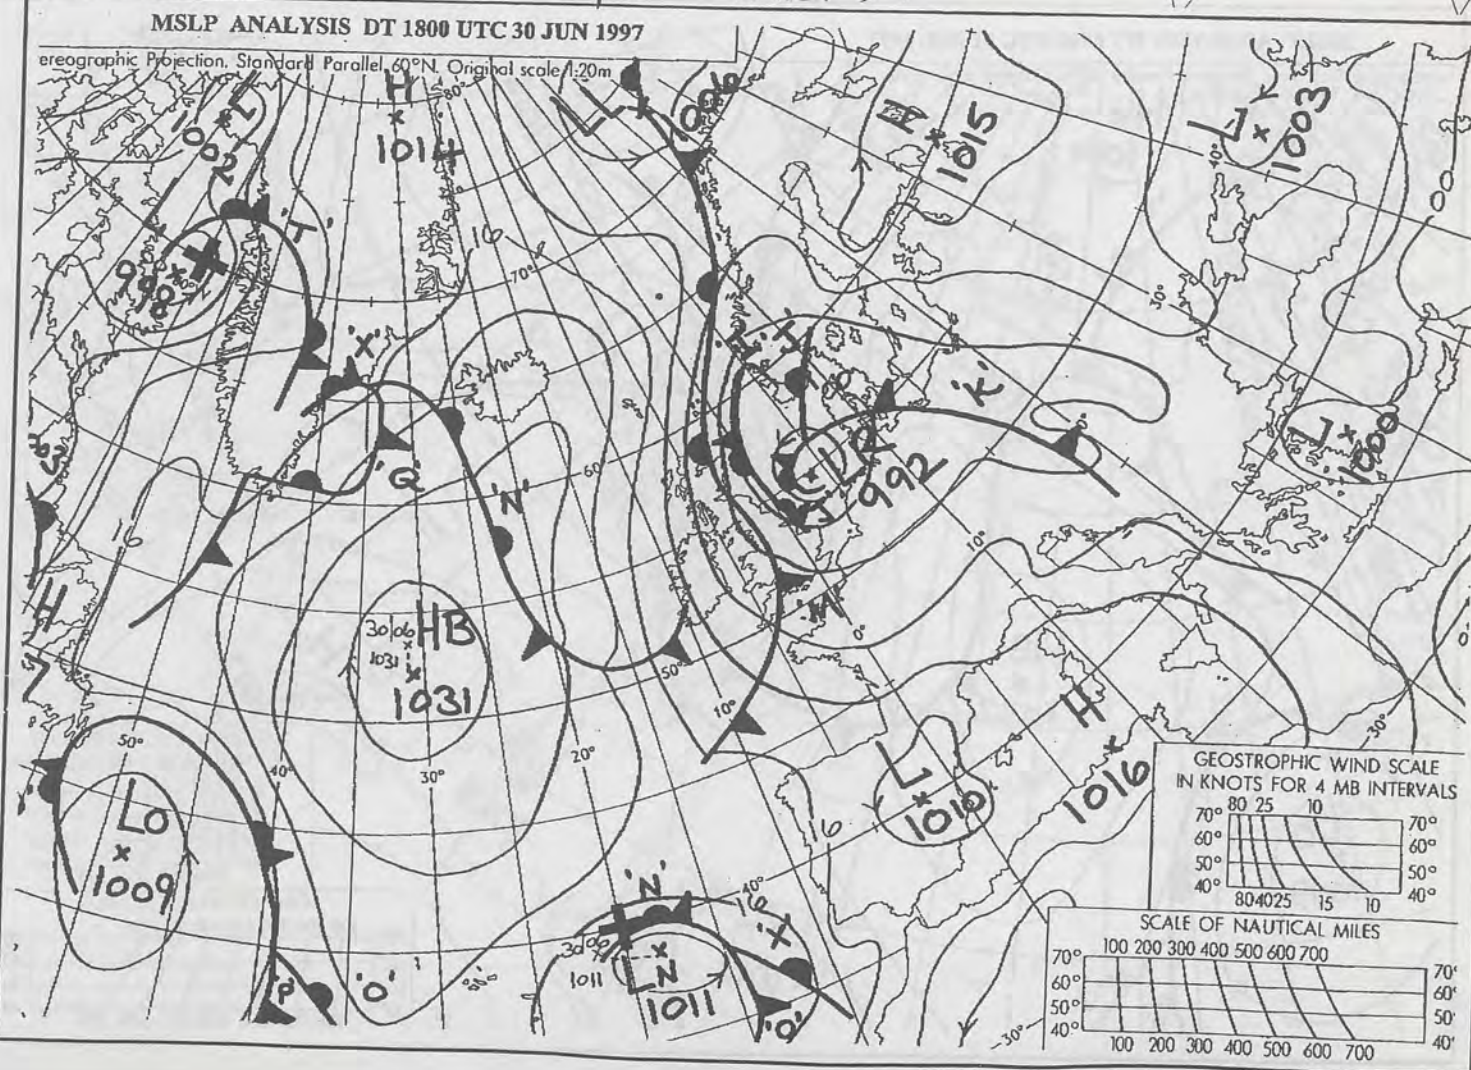 MSLP ANALYSIS DT 1800 UTC 30 JUN 1997
ereographic Projection. Standard Parallel 60°N. Original scale 1:20m
H
1014
80°
L
1002
L
1006
H
1015
L
1003
40°
0
0
'T'
998
16
70°
30°
'X'
'J'
'K'
0°
L
1000
'Q'
'N'
60
L
992
10°
16
H
HB
30/06
1031
1031
50°
'M'
0°
10°
H
1016
30°
50°
40°
30°
20°
L
1010
16
LO
1009
'N'
40°
16
'X'
30/06
1011
LN
1011
'P'
'O'
'O'
30°
GEOSTROPHIC WIND SCALE
IN KNOTS FOR 4 MB INTERVALS
80 25 10
70° 70°
60° 60°
50° 50°
40° 40°
80 40 25 15 10
SCALE OF NAUTICAL MILES
100 200 300 400 500 600 700
70° 70°
60° 60°
50° 50'
40° 40'
100 200 300 400 500 600 700